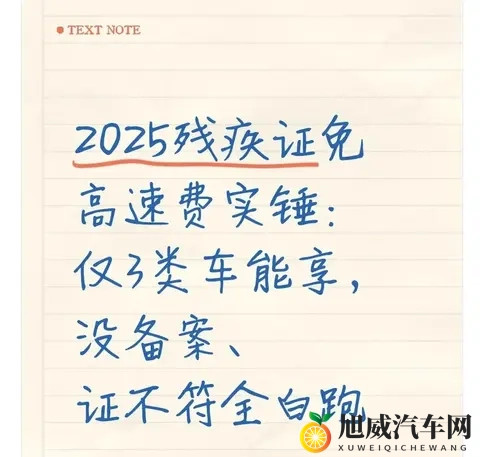 TEXT NOTE
2025残疾证免
高速费实锤:
仅3类车能享,
没备案、
证不符全白跑
旭威汽车网
XUWEIQICHEWANG